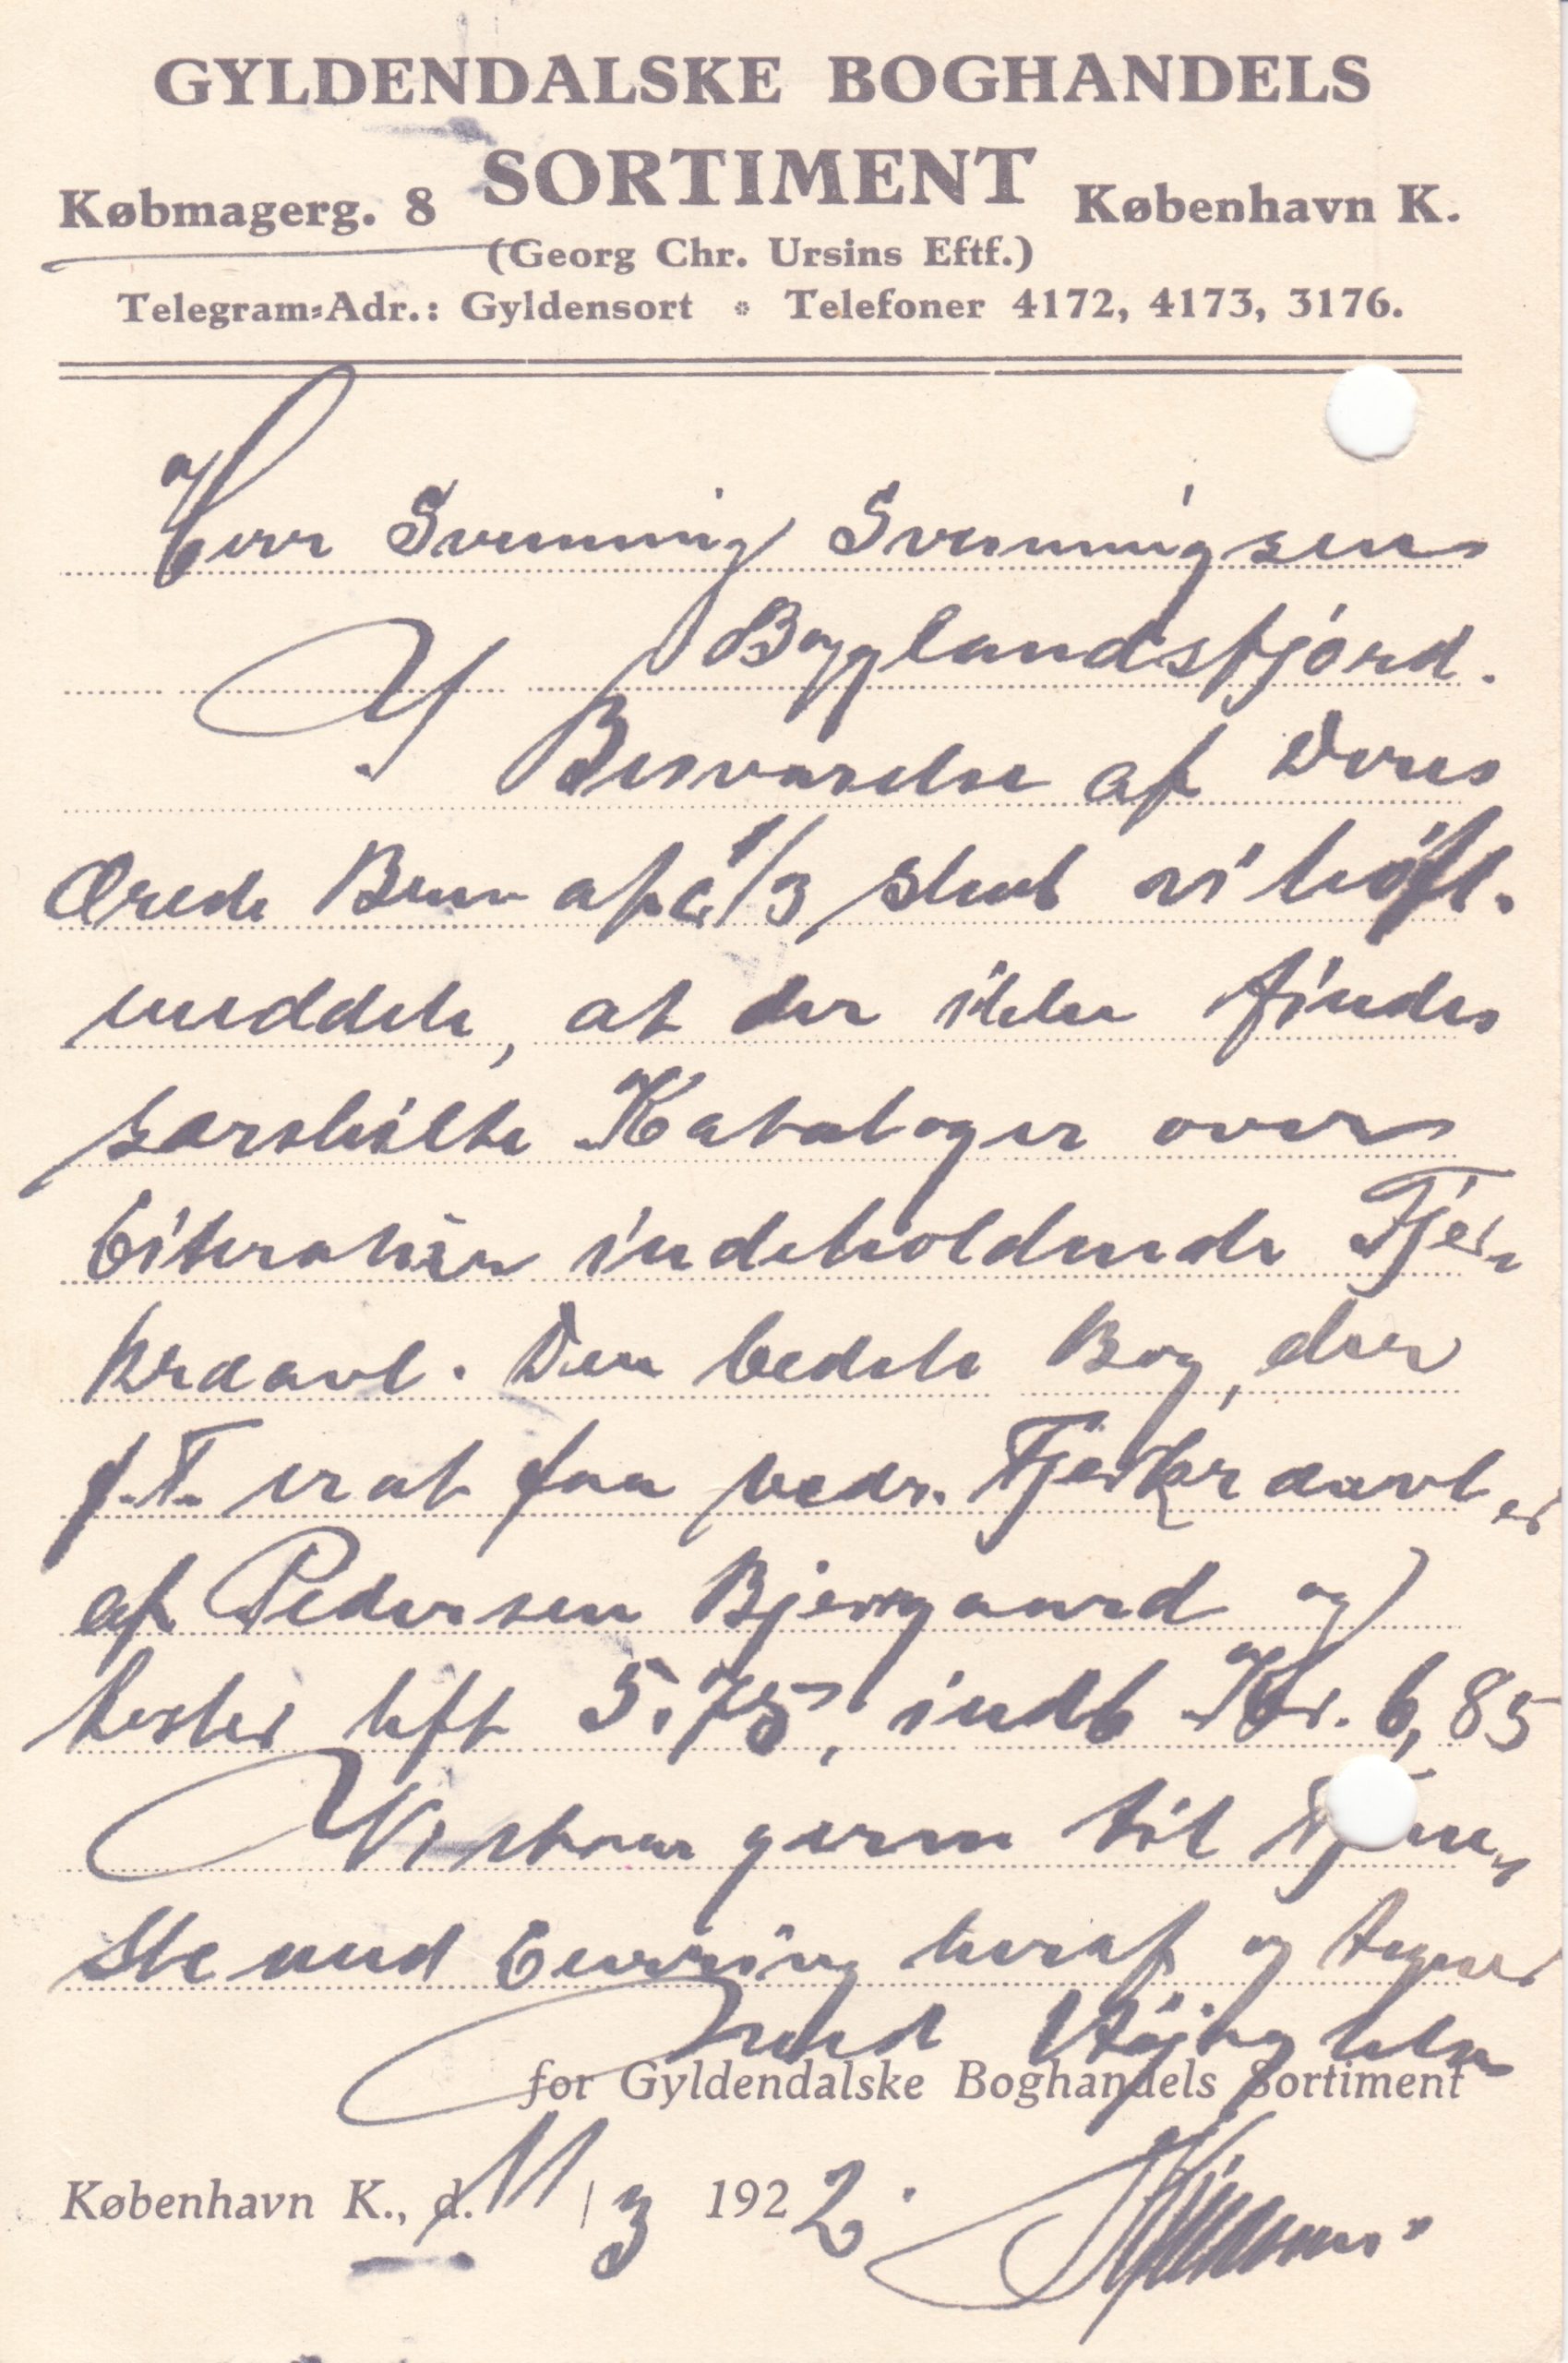 GYLDENDALSKE BOGHANDELS
SORTIMENT
Købmagerg. 8 København K.
(Georg Chr. Ursins Eftf.)
Telegram-Adr.: Gyldensort * Telefoner 4172, 4173, 3176.
Herr Svenning Svenningsen
Bygglandsfjord.
I Besvarelse af Deres
ærede Brev af 1/3 skal vi høfl.
meddele, at der ikke findes
særskilte Kataloger over
Literatur indeholdende Fjer-
kræavl. Den bedste Bog, der
p.T. er at faa vedr. Fjerkræavl er
af Pedersen Bjergaard og
koster hft 5.75, indb Kr. 6,85
Vi staar gerne til Tjene-
ste med Levering heraf og tegner
med Højagtelse
for Gyldendalske Boghandels Sortiment
København K., d. 11/3 1922.